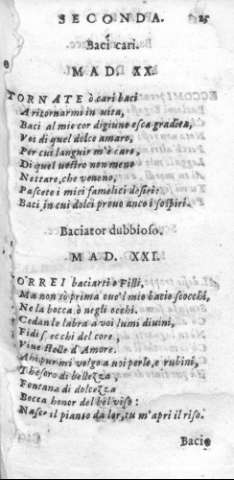 SECONDA. 25
Baci cari.
MAD. XX.
TORNATE ò cari baci
A ritornarmi in vita,
Baci al mio cor digiuno esca gradita,
Voi di quel dolce amaro,
Per cui languir m'è caro,
Di quel vostro non meno
Nettare, che veneno,
Pascete i miei famelici desiri:
Baci, in cui dolci provo anco i sospiri.
Baciator dubbioso.
MAD. XXI.
VORREI baciarti ò Filli,
Ma non sò prima ove'l mio bacio scocchi,
Ne la bocca ò negli occhi.
Cedan le labra a voi lumi divini,
Fidi specchi del core,
Vive stelle d'Amore.
Ahi pur mi volgo a voi perle, e rubini,
Thesoro di bellezza,
Fontana di dolcezza
Bocca honor del bel viso:
Nasce il pianto da lor, tu m'apri il riso.
Bacio